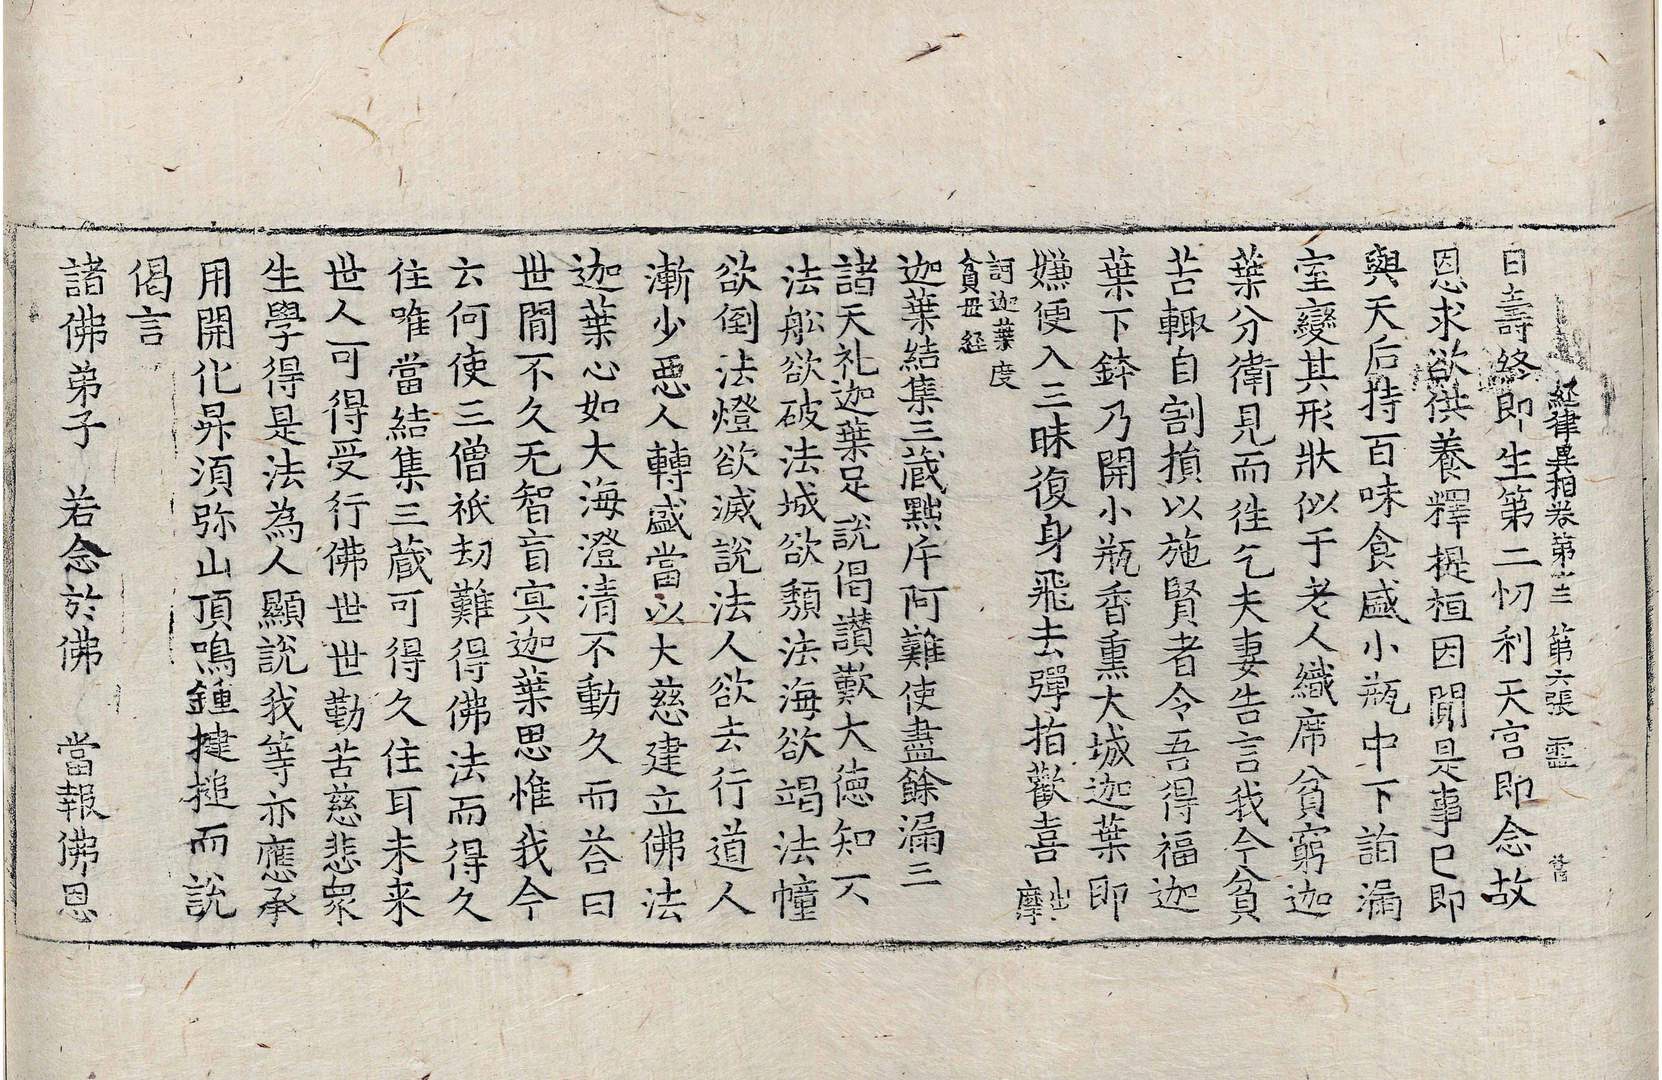 經律異相卷第十三 第六張 靈
日壽終即生第二忉利天宮即念故
恩求欲供養釋提桓因聞是事已即
與天后持百味食盛小瓶中下詣漏
室變其形狀似于老人織席貧窮迦
葉分衛見而往乞夫妻告言我今貧
苦輙自割損以施賢者令吾得福迦
葉下鉢乃開小瓶香熏大城迦葉即
嫌便入三昧復身飛去彈指歡喜 出摩
訶迦葉度
貧母經
迦葉結集三藏黜斥阿難使盡餘漏三
諸天礼迦葉足說偈讃歎大德知不
法舩欲破法城欲頹法海欲竭法幢
欲倒法燈欲滅說法人欲去行道人
漸少惡人轉盛當以大慈建立佛法
迦葉心如大海澄清不動久而荅曰
世間不久无智盲㝠迦葉思惟我今
云何使三僧祇劫難得佛法而得久
住唯當結集三藏可得久住耳未来
世人可得受行佛世世勤苦慈悲衆
生學得是法為人顯說我等亦應承
用開化昇須弥山頂鳴鍾揵搥而說
偈言
諸佛弟子 若念於佛 當報佛恩